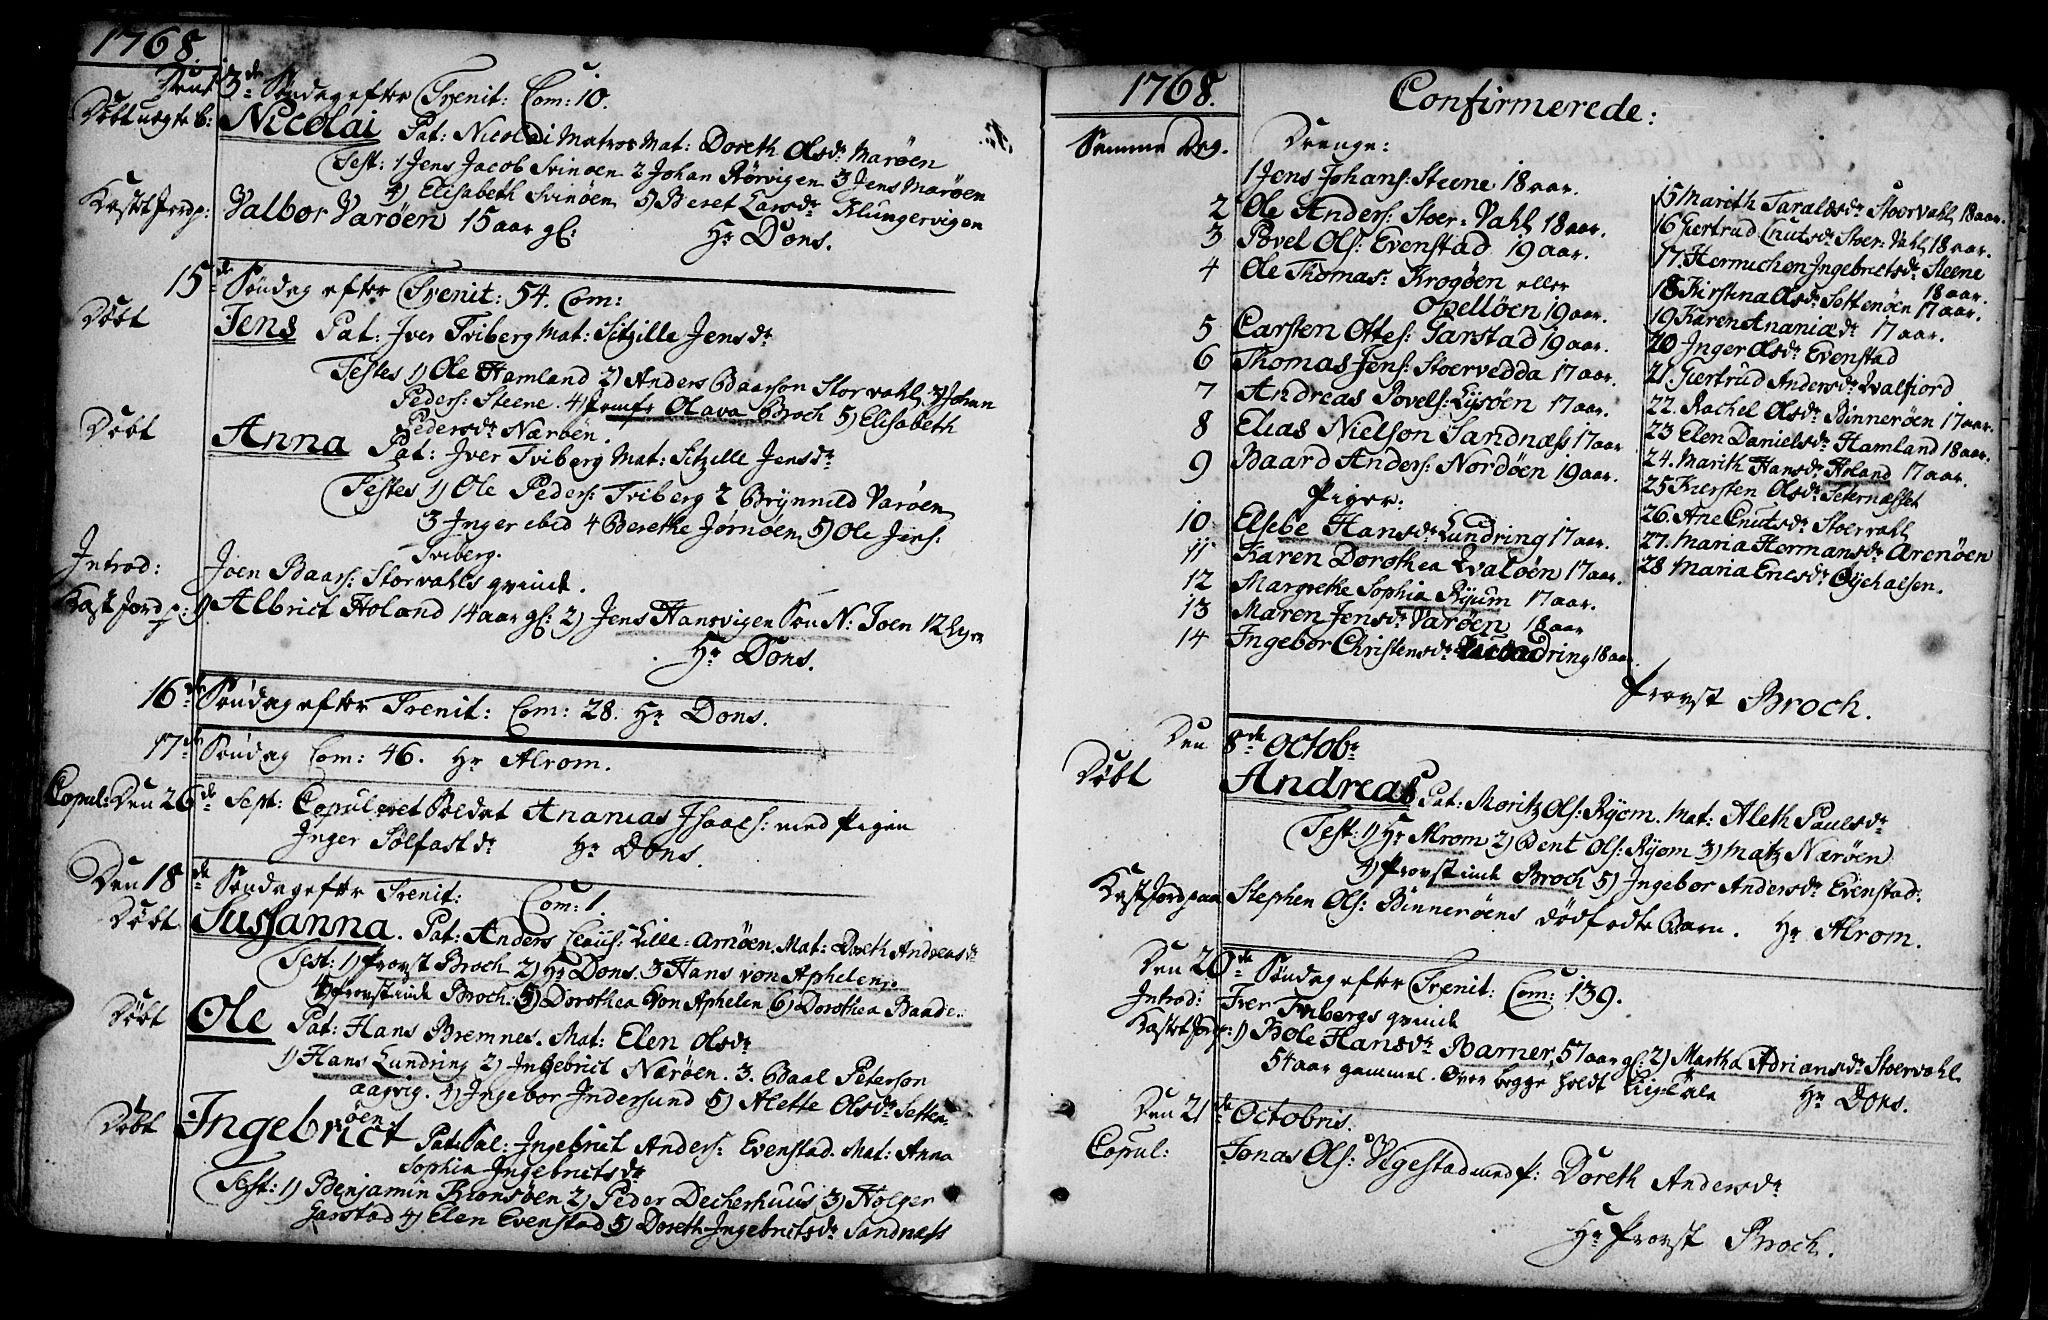 1768.
Den 13de Søndag efter Trenit: Com: 10.
Døbt uegte b: Nicolai Pat: Nicolai Matros Mat: Doreth Olsdr Marøen
Test: 1 Jens Jacob Svinøen 2 Johan Rørvigen 3 Jens Marøen
4) Elisabeth Svinøen 5) Beret Larsdr Klungervigen
Kastet Jord p: Valbor Varøen 15 aar gl: Hr Dons.
15de Søndag efter Trenit: 54. Com:
Døbt Jens Pat: Jver Tviberg Mat: Sitzille Jensdr
Testes 1) Ole Hamland 2) Anders Baarson Storvahl 3) Johan
Peders: Steene. 4) Jomfr Olava Broch 5) Elisabeth
Pedersdr Nærøen.
Døbt Anna Pat: Jver Tviberg Mat: Sitzille Jensdr
Testes 1) Ole Peders: Tviberg 2 Brynnild Varøen
3 Inger ibid 4 Berethe Jørnøen 5) Ole Jens:
Tviberg.
Introd: Joen Baars: Storvahls qvinde.
Kast Jord p: 1) Albrict Holand 14 aar gl: 2) Jens Hansvigen Søn N: Joen 12 Uger
Hr Dons.
16de Søndag efter Trenit: Com: 28. Hr Dons.
17de Søndag Com: 46. Hr Alrom.
Copul: Den 26de Sept: Copuleret Soldat Ananias Jsaacs: med Pigen
Inger Sølfastdr Hr Dons.
Den 18de Søndag efter Trenit: Com: 1.
Døbt Sussanna. Pat: Anders Claus: Lille-Arnøen. Mat: Doreth Andreasdr
Test: 1) Provst Broch 2) Hr Dons. 3 Hans von Aphelen.
4) Provstinde Broch. 5) Dorothea von Aphelen 6) Dorothea Baade.
Døbt Ole Pat: Hans Bremnes. Mat: Elen Olsdr
1) Hans Lundring 2) Ingebrict Nærøen. 3. Baal Peterson
aarvig. 4) Ingebor Indersund 5) Alette Olsdr Setten
øen
Døbt Ingebrict Pat: Sal: Ingebrict Anders: Evenstad. Mat: Anna
Sophia Ingebrictsdr
Test: 1) Benjamin Bronsøen 2) Peder Decherhuus 3) Holger
Garstad 4) Elen Evenstad 5) Doreth Ingebrictsdr Sandness
1768. Confirmerede:
Samme Dag. Drenge:
1 Jens Johans: Steene 18 aar.
2 Ole Anders: Stoer-Vahl 18 aar.
3 Povel Ols: Evenstad 19 aar.
4 Ole Thomas: Krogøen eller
Opelløen 19 aar.
5 Carsten Ottes: Garstad 19 aar.
6 Thomas Jens: Stoervedda 17 aar.
7 Andreas Povels: Lysøen 17 aar.
8 Elias Nielson Sandnæss 17 aar
9 Baard Anders: Nordøen 19 aar.
Piger:
10 Elsebe Hansdr Lundring 17 aar.
11 Karen Dorothea Qvaløen 17 aar.
12 Margrethe Sophia Ryum 17 aar.
13 Maren Jensdr Varøen 18 aar
14 Ingebor Christensdr Lundring 18 aar.
15 Marith Taraldsdr Stoervahl 18 aar.
16 Giertrud Cnutsdr Stoer-Vahl 18 aar.
17 Hermichen Ingebrictsdr Steene
18 aar.
18 Kirstina Olsdr Settenøen 17 aar.
19 Karen Ananiædr 17 aar.
20 Inger Olsdr Evenstad
21. Giertrud Andersdr Qvalfiord
22. Rachel Olsdr Binnerøen 17 aar.
23 Elen Danielsdr Hamland 18 aar.
24. Marith Hansdr Holand 17 aar.
25 Kiersten Olsdr Seternæsset
26. Ane Cnutsdr Stoervahl
27. Maria Hermansdr Arenøen
28 Maria Enesdr Øiehalsen.
Provst Broch.
Den 8de Octobr
Døbt Andreas Pat: Moritz Ols: Ryom. Mat: Aleth Paulsdr
Test: 1) Hr Alrom 2) Bent Ols: Ryom 3) Matz Nærøen
4) Provstinde Broch 5) Ingebor Andersdr Evenstad.
Kast Jord paa Stephen Ols: Binnerøens dødfødte Barn. Hr Alrom.
Den 20de Søndag efter Trenit: Com: 139.
Introd: Iver Tvibergs qvinde
Kastet Jord p: 1) Bole Hansdr Barner, 57 aar gl: 2) Martha Adriansdr Stoervahl
54 aar gammel. Over begge holdt Liigtale Hr Dons.
Den 21de Octobris.
Copul: Jonas Ols: Vegestad med P: Doreth Andersdr
Hr Provst Broch.